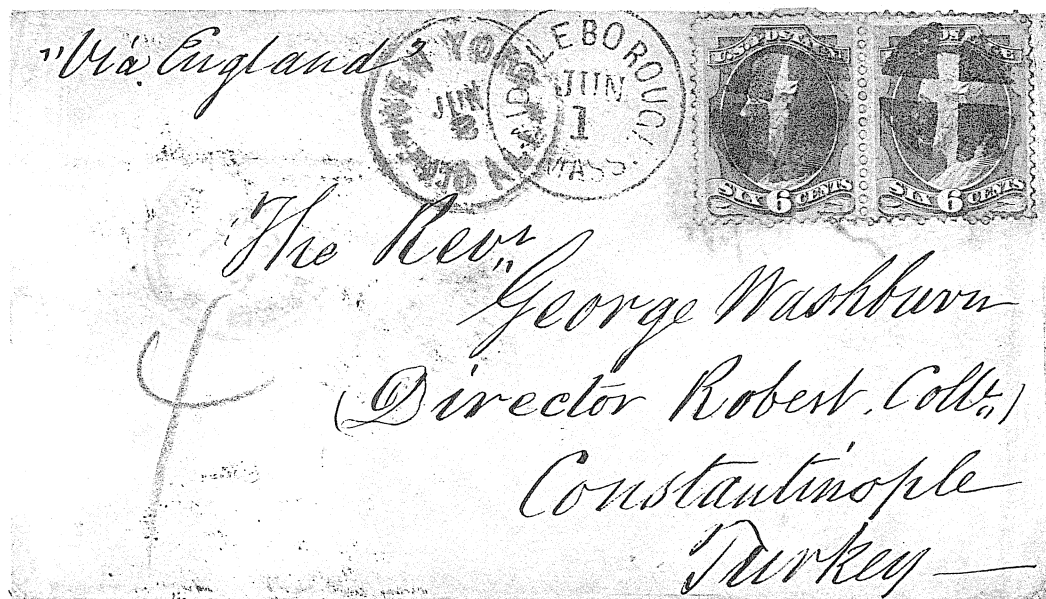 "Via England"
NEW YO
JUN
MIDDLEBOROUGH
JUN
1
MASS.
U.S. POSTAGE
SIX 6 CENTS
SIX 6 CENTS
The Revr
George Washburn
(Director Robert. Coll)
Constantinople
Turkey
4